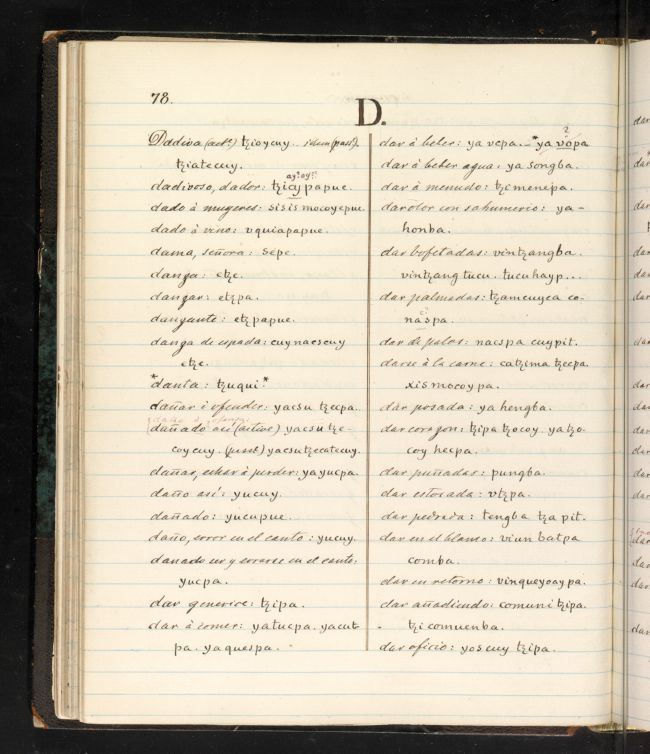 78.
D.
Dadiva (act.ᵃ) tzioycuy. idem (pas.ᵃ).
tziatecuy.
dadivoso, dador: tzicypapue.
dado à mugeres: sisis mocoyepue.
dado à vino: vquiapapue.
dama, señora: sepe.
dança: etze.
dançar: etzpa.
dançante: etzpapue.
dança de espada: cuynacscuy
etze.
*danta: tzuqui.*
dañar i ofender: yacsu tzecpa.
dañado asi (activè) yacsu tze-
coy cuy. (passè) yacsu tzecatecuy.
dañar, echar à perder: yayucpa.
daño asi: yucuy.
dañado: yucupue.
daño, error en el canto: yucuy.
danado ser y errarse en el canto:
yucpa.
dar generice: tzipa.
dar à comer: yatucpa. yacut-
pa. yaquespa.
dar à beber: ya vcpa. *ya vòpa
?
dar à beber agua: ya songba.
dar à menudo: tzimenepa.
dar olor con sahumerio: ya-
honba.
dar bofetadas: vintzangba.
vintzangtucu. tucuhayp...
dar palmadas: tzamcuyca co-
naspa.
dar de palos: nacspa cuypit.
darse à la carne: catzima tzecpa.
xismocoypa.
dar posada: ya hengba.
dar coraçon: tzipa tzocoy. yatzo-
coy hecpa.
dar puñadas: pungba.
dar estocada: vtzpa.
dar pedrada: tengba tza pit.
dar en el blanco: viun batpa
comba.
dar en retorno: vinqueyoaypa.
dar añadiendo: comuni tzipa.
tzicomuenba.
dar oficio: yoscuy tzipa.